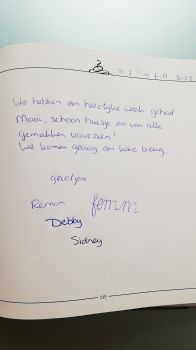 31-7 t/m 7-8 2023
We hebben een heerlijke week gehad
Mooi, schoon huisje en van alle
gemakken voorzien!
We komen graag een keer terug
groetjes
Remon femm
Debby
Sidney